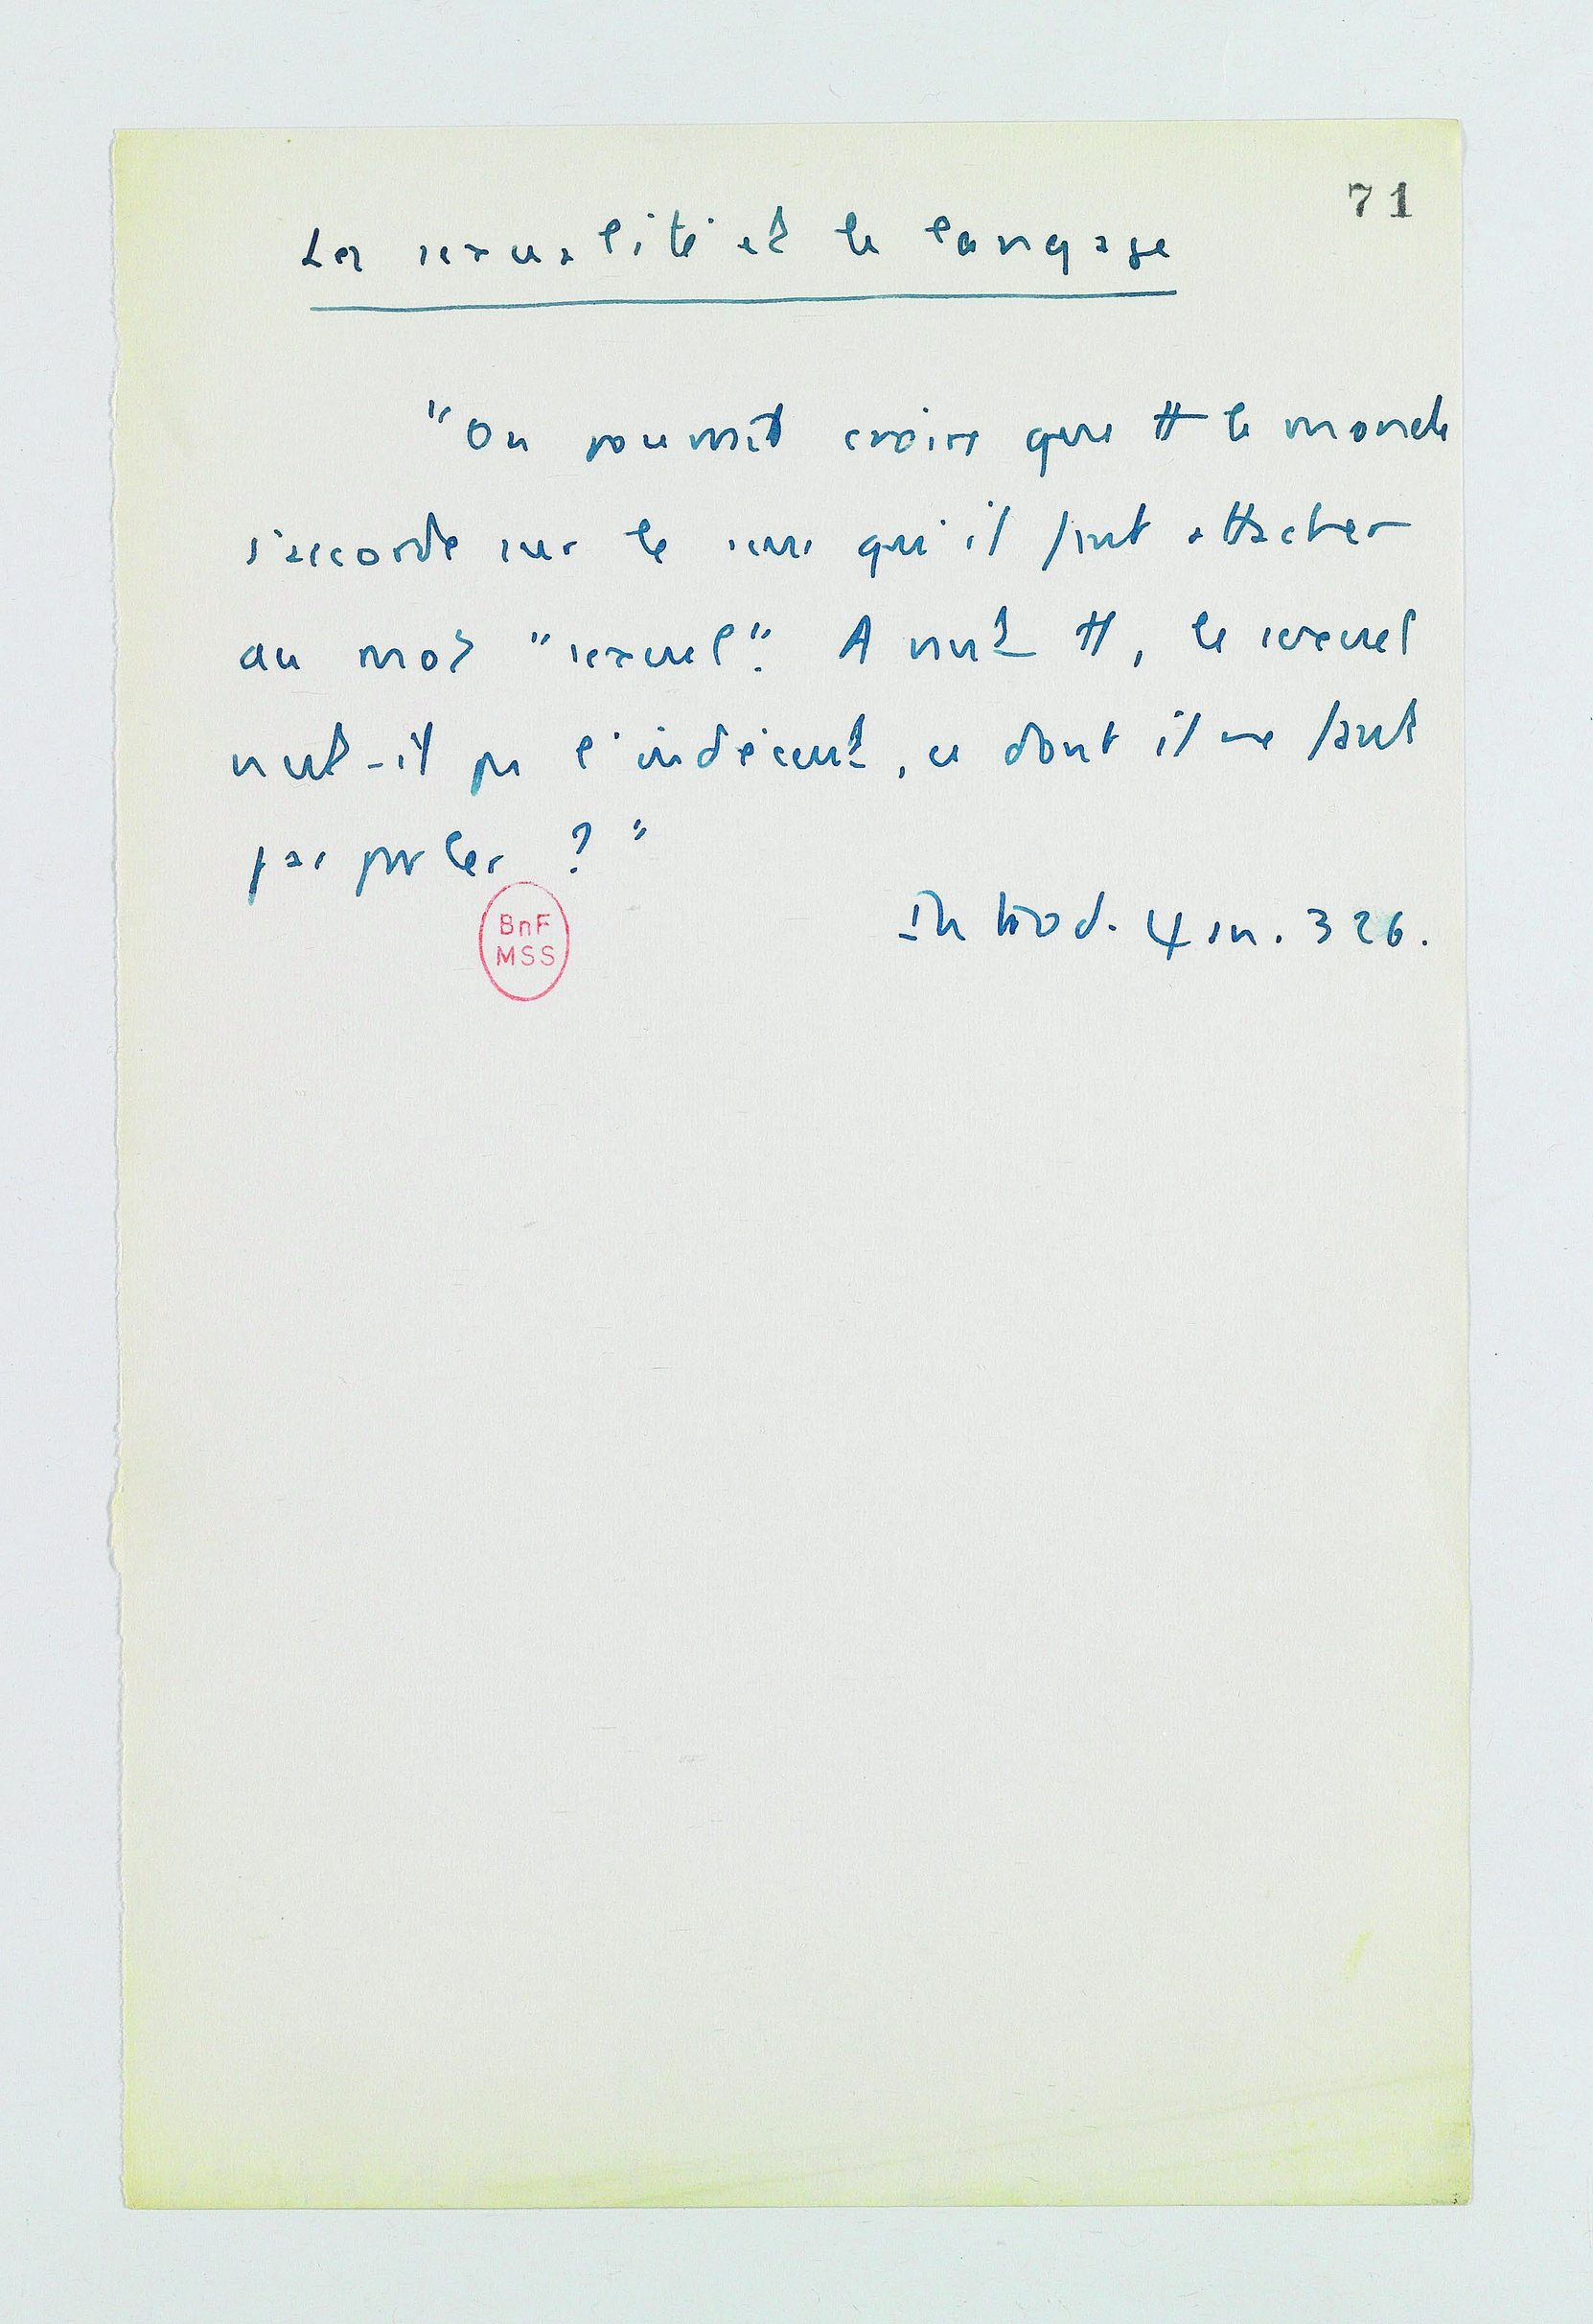 71
La sexualité et le langage
"On pourrait croire que tt le monde
s'accorde sur le sens qu'il faut attacher
au mot "sexuel". Avant tt, le sexuel
n'est-il pas l'indécent, ce dont il ne faut
pas parler ? "
BnF
MSS
Introd. 326.